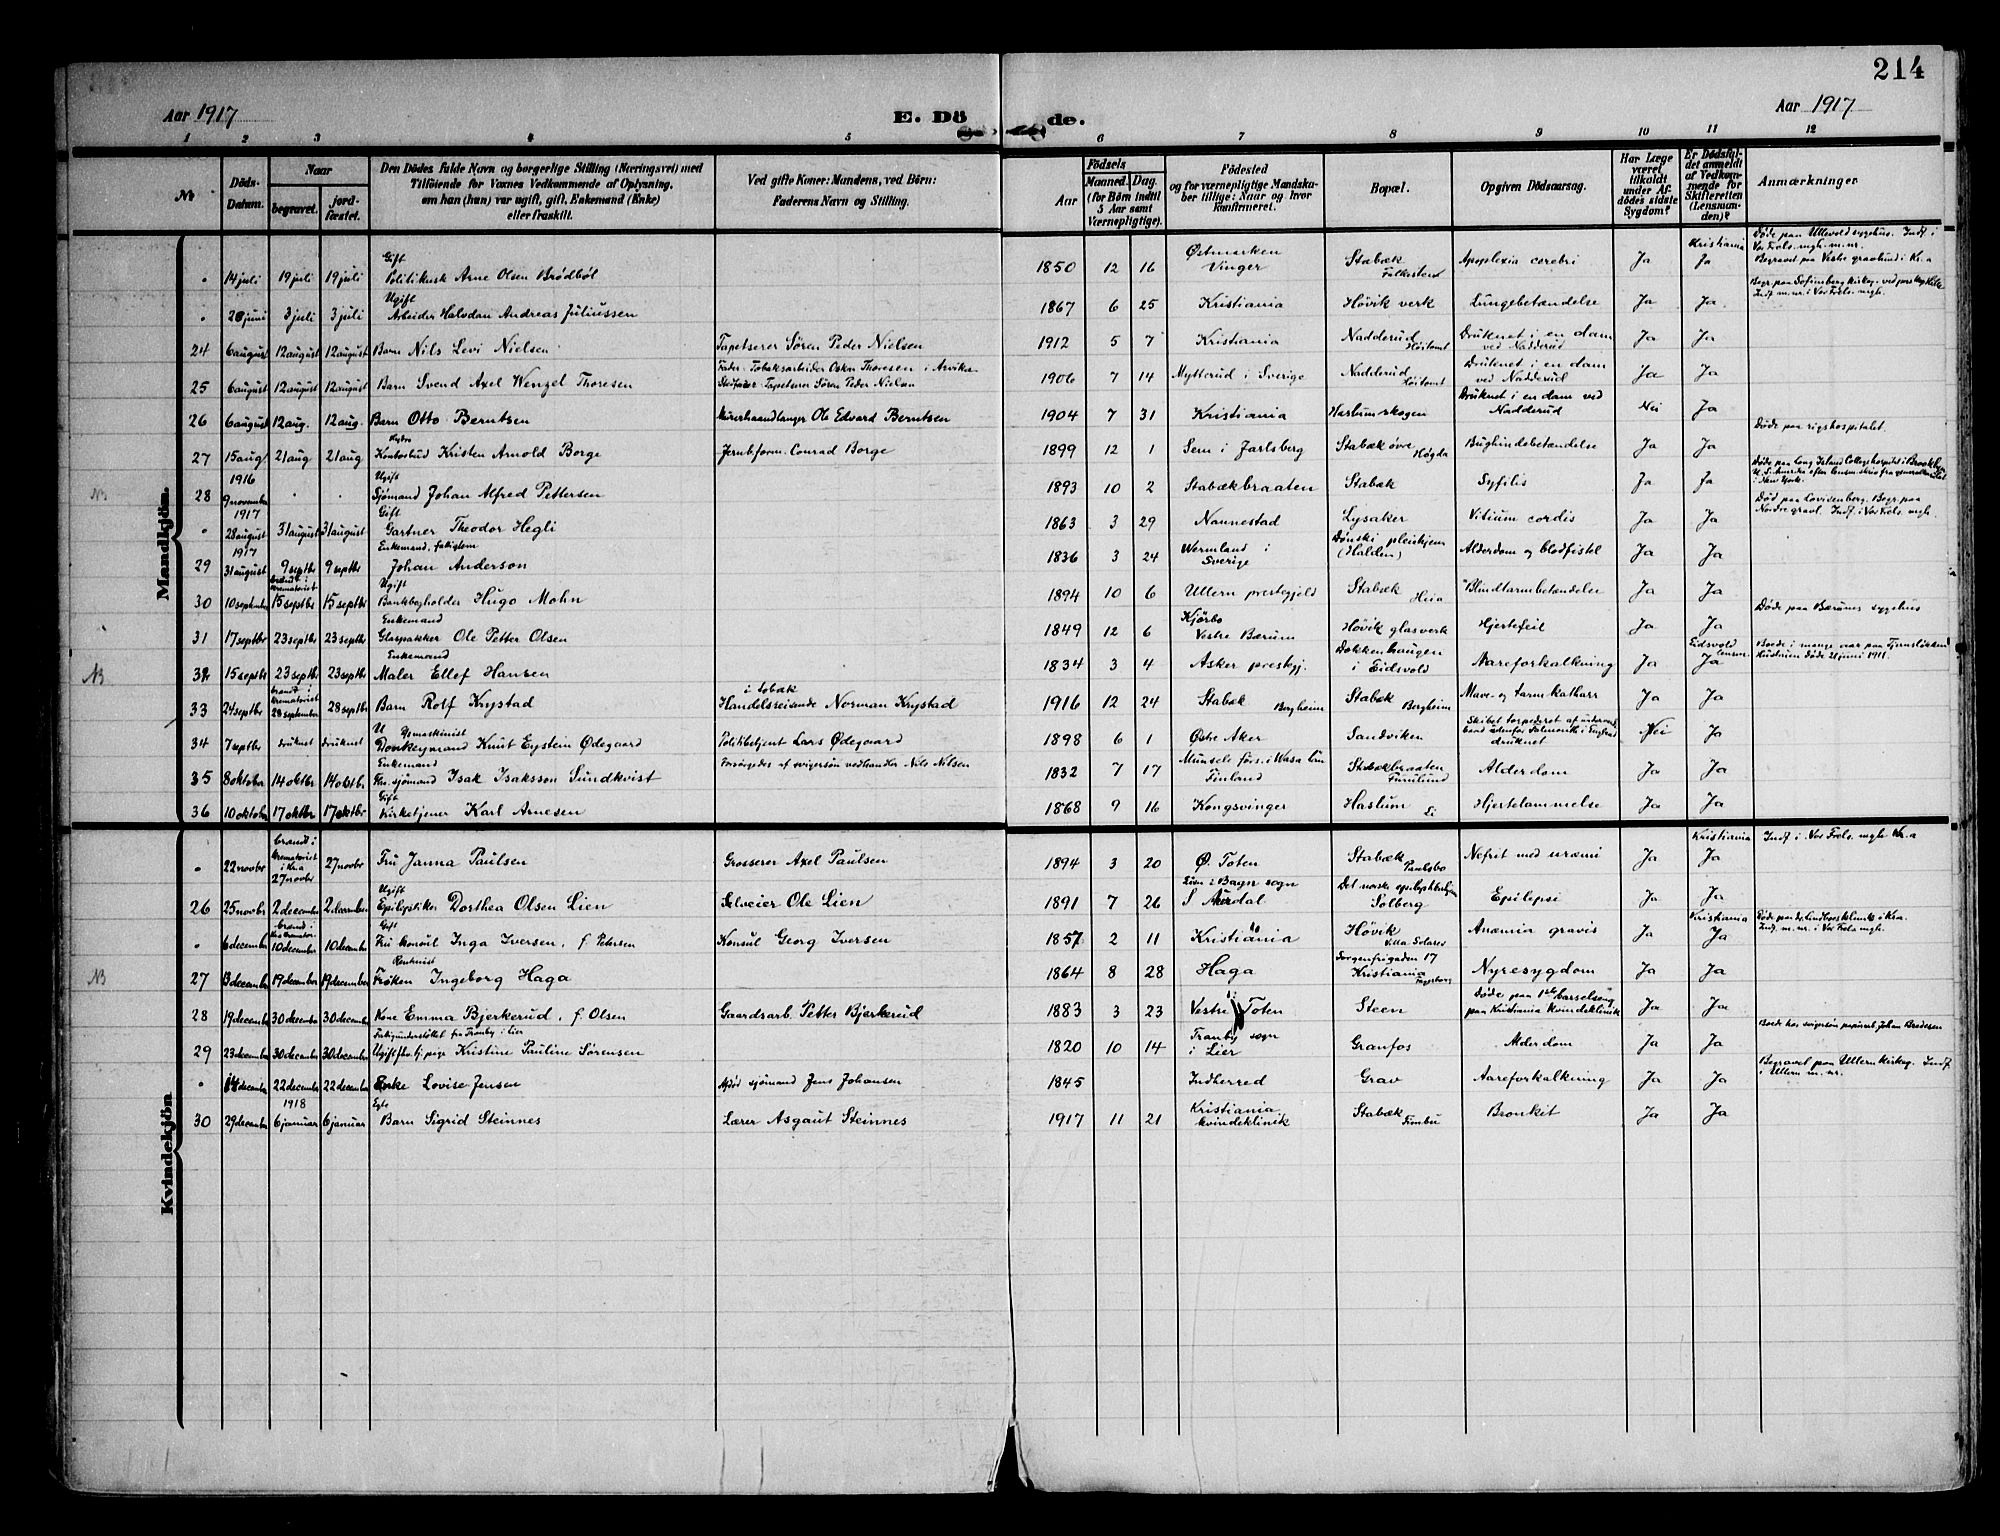 214
Aar 1917
E. Dö de.
Aar 1917
1 2 3 4 5 6 7 8 9 10 11 12
Nr
Döds-Datum.
Naar
begravet.
jordfæstet.
Den Dödes fulde Navn og borgerlige Stilling (Næringsvei) med Tilföiende for Voxnes Vedkommende af Oplysning, om han (hun) var ugift, gift, Enkemand (Enke) eller fraskilt.
Ved gifte Koner: Mandens, ved Börn: Faderens Navn og Stilling.
Födsels
Aar
Maaned. Dag.
(for Börn indtil 5 Aar samt Værnepligtige).
Födested og for værnepligtige Mandskaber tillige: Naar og hvor konfirmeret.
Bopæl.
Opgiven Dödsaarsag.
Har Læge været tilkaldt under Afdödes sidste Sygdom?
Er Dödsfaldet anmeldt af Vedkommende for Skifteretten (Lensmanden)?
Anmærkninger
Mandkjön.
" 14 juli 19 juli 19 juli Gift Politikusk Arne Olsen Brødbøl 1850 12 16 Østmarken Vinger Stabæk Falkestend Apoplexia cerebri Ja Kristiania Ja Døde paa Ullevold sygehus. Indf. i Vor Frels. mgh. m. nr. Begravet paa Vestre gravlund i Kr.a
" 28 juni 3 juli 3 juli Ugift Arbeider Halvdan Andreas Juliussen 1867 6 25 Kristiania Høvik verk Lungebetændelse Ja Ja Begr. paa Sofienberg kirkeg. Indf. m. nr. i Vor Frels. mgh.
24 6 august 12 august 12 august Barn Nils Levi Nielsen Tapetserer Søren Peder Nielsen 1912 5 7 Kristiania Nadderud Høitomt Druknet i en dam ved Nadderud Ja Ja
25 6 august 12 august 12 august Barn Svend Axel Wenzel Thoresen Fader: Tobaksarbeider Oskar Thoresen i Arvika Stedfader Tapetserer Søren Peder Nielsen 1906 7 14 Mytterud i Sverige Nadderud Høitomt Druknet i en dam ved Nadderud Ja Ja
26 6 august 12 aug. 12 aug. Barn Otto Berntsen Murerhaandlanger Ole Edvard Berntsen 1904 7 31 Kristiania Haslumskogen Druknet i en dam ved Nadderud Nei Ja
27 15 aug 21 aug 21 aug Kontorbud Kristen Arnold Borge Jernbform. Conrad Borge 1899 12 1 Sem i Jarlsberg Stabæk øvre Høgda Bughindebetændelse Ja Ja Døde paa rigshospitalet.
28 1916 9 november " " Ugift Sjømand Johan Alfred Pettersen 1893 10 2 Stabækbraaten Stabæk Syfilis Ja Ja Døde paa Long Island College hospital i Brooklyn U. S. Amerika efter
" 1917 28 august 31 august 31 august Gift Gartner Theodor Hegli 1863 3 29 Nannestad Lysaker Vitium cordis Ja Ja Død paa Lovisenberg. Begr. paa Nordre gravl. Indf. i Vor Frels. mgh.
29 1917 31 august 9 septbr 9 septbr Enkemand, fattiglem Johan Anderson 1836 3 24 Wermland i Sverige Dønski pleiehjem (Halden) Alderdom og blodfistel Ja Ja
30 10 septembr brændt i krematoriet 15 septbr 15 septbr Ugift Bankbogholder Hugo Mohn 1894 10 6 Ullern prestegjeld Stabæk Heia Blindtarmbetændelse Ja Ja
31 17 septbr 23 septbr 23 septbr Enkemand Glaspakker Ole Petter Olsen 1849 12 6 Kjørbo Vestre Bærum Høvik glasverk Hjertefeil Ja Ja Døde paa Bærums sygehus
32 15 septbr 23 septbr 23 septbr Enkemand Maler Ellef Hansen 1834 3 4 Asker prestegj. Dokkenhaugen i Eidsvold Aareforkalkning Ja Eidsvold Ja Boede i mange aar paa Hustruen døde 21 juni 1911.
33 24 septbr brændt i krematoriet 28 september 28 septbr Barn Rolf Krystad Handelsreisende i tobak Norman Krystad 1916 12 24 Stabæk Bergheim Stabæk Bergheim Mave- og tarmkatharr Ja Ja
34 7 septbr druknet druknet U Donkeymand Knut Eystein Ødegaard Politibetjent Lars Ødegaard 1898 6 1 Østre Aker Sandviken Skibet torpederet af undervandsbaad udenfor Falmouth i England druknet Nei Ja
35 8 oktober 14 oktbr 14 oktbr Enkemand Fh. sjømand Isak Isaksson Sundkvist Forsørgedes af svigersøn vedhandler Nils Nilsen 1832 7 17 Munsele førs. i Wasa Län Finland Stabækbraaten Furulund Alderdom Ja Ja
36 10 oktober 17 oktbr 17 oktbr Gift Kirketjener Karl Arnesen 1868 9 16 Kongsvinger Haslum Li Hjertelammelse Ja Ja
Kvindekjön
" 22 novbr brændt i krematoriet i Kr.a 27 novbr 27 novbr Fru Janna Paulsen Grosserer Axel Paulsen 1894 3 20 Ø. Toten Stabæk Paulsbo Nefrit med uræmi Ja Kristiania Ja Indf. i Vor Frels. mgh. Kr.a
26 25 novbr 2 december 2 december Ugift Epileptiker Dorthea Olsen Lien Selveier Ole Lien 1891 7 26 Lien i Bagn sogn S. Aurdal Det norske epileptikerhjem Solberg Epilepsi Ja Ja
" 6 december brændt i 10 december 10 december Gift Fru konsul Inga Iversen, f. Petersen Konsul Georg Iversen 1857 2 11 Kristiania Høvik Villa Solares Anæmia gravis Ja Kristiania Ja Døde paa dr. Lindboes klinik i Kr.a. Indf. m. nr. i Vor Frels mgh.
27 13 december 19 december 19 december Frøken Ingeborg Haga 1864 8 28 Haga Sorgenfrigaden 17 Kristiania Nyresygdom Ja Ja
28 19 december 30 december 30 december Kone Emma Bjerkerud, f. Olsen Gaardsarb. Petter Bjerkerud 1883 3 23 Vestre Toten Steen Døde paa 1ste barselseng paa Kristiania kvindeklinik Ja Ja
29 23 december 30 december 30 december Fattigunderstøttet fra Tranby i Lier Ugift fhv. tj. pige Kristine Pauline Sørensen 1820 10 14 Tranby sogn i Lier Granfos Alderdom Ja Ja Boede hos svigersøn papirarb. Johan Bredesen
" 14 december 22 december 22 december Enke Lovise Jensen Afdød sjømand Jens Johansen 1845 Indherred Grav Aareforkalkning Ja Ja Begravet paa Ullern kirkeg. Indf. i Ullern m. nr.
30 29 december 1918 6 januar 6 januar Egte Barn Sigrid Steinnes Lærer Asgaut Steinnes 1917 11 21 Kristiania kvindeklinik Stabæk Fimbu Bronkit Ja Ja